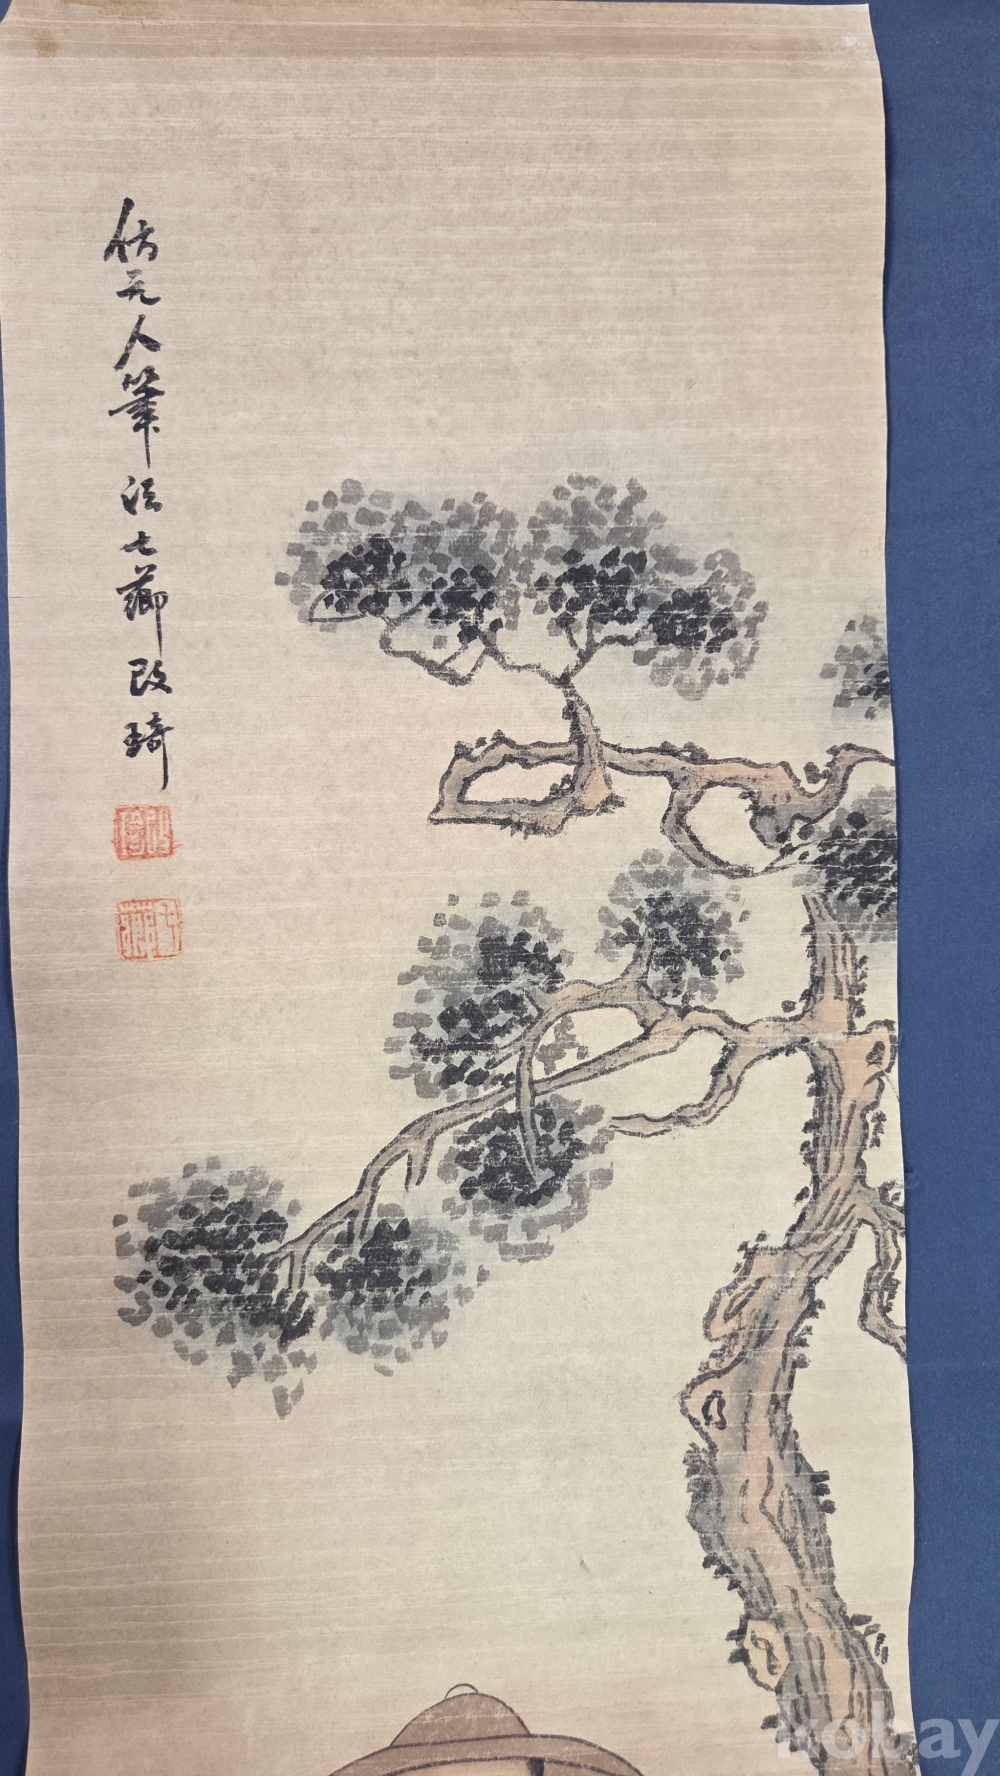 仿元人筆法七薌改琦
kobay